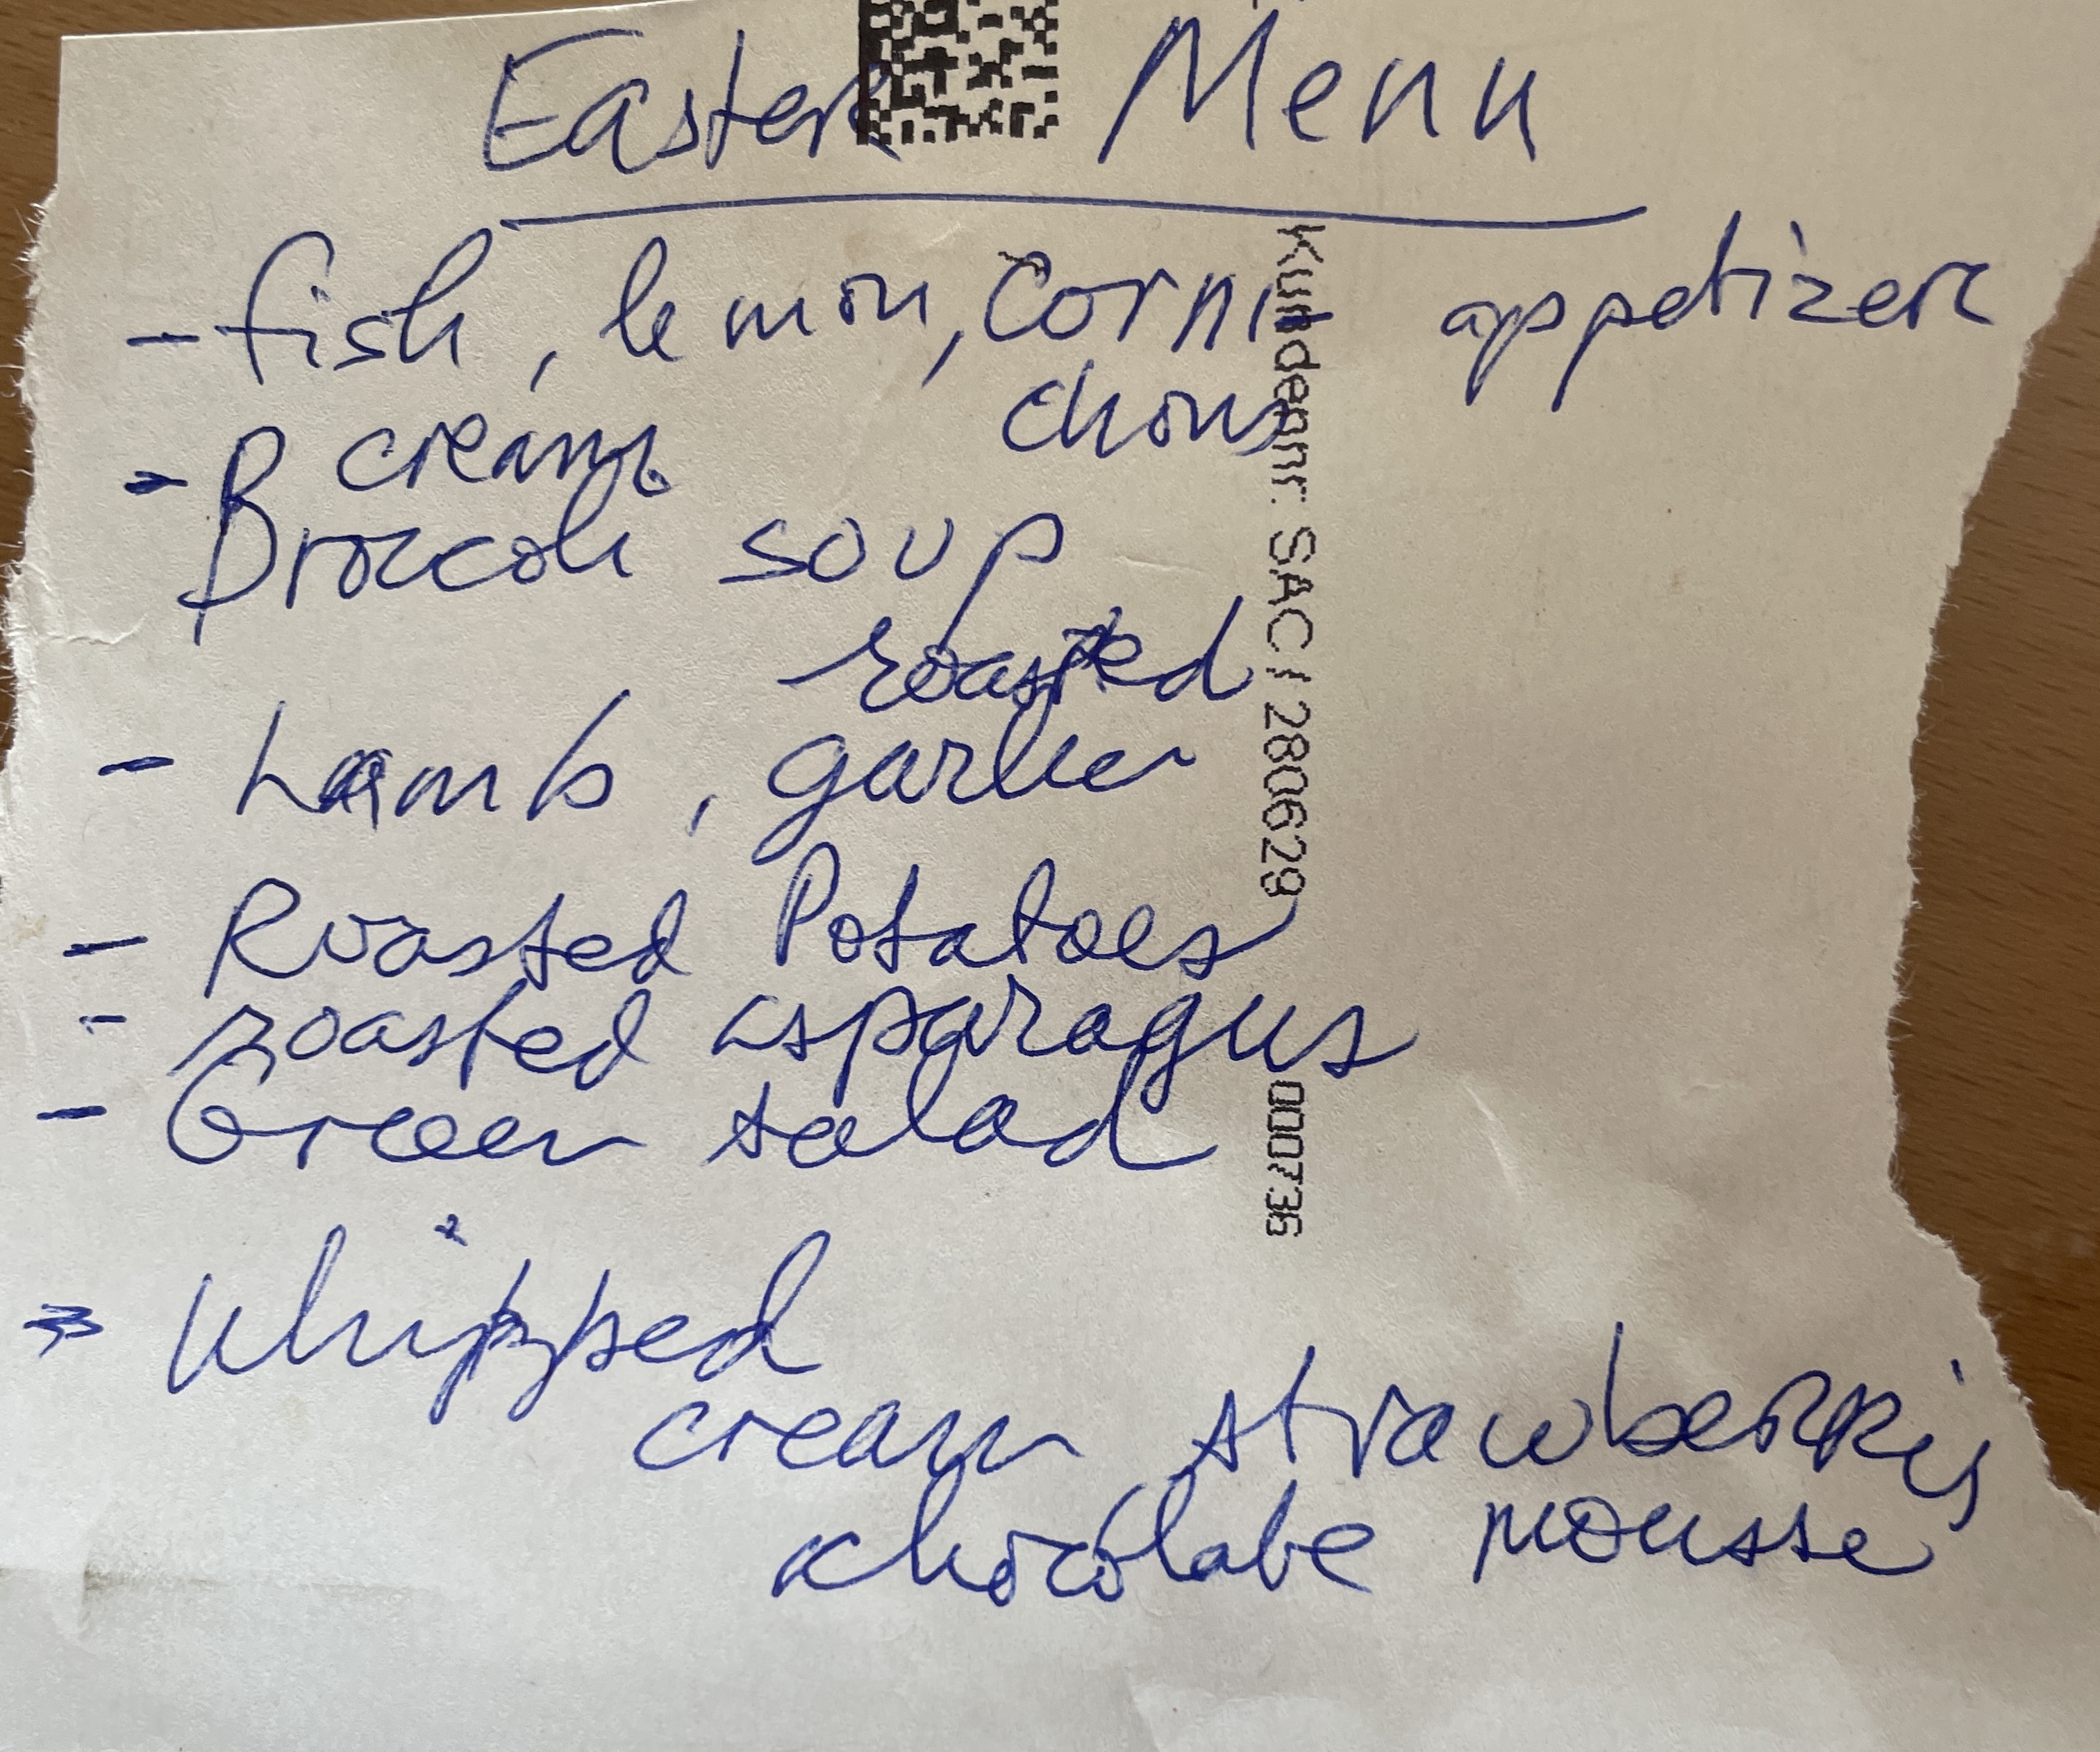 Easter Menu
- fish, lemon, Corni appetizer
chons
cream
- Broccoli soup
roasted
- Lamb, garlic
- Roasted Potatoes
- roasted asparagus
- Green salad
- Whipped
cream strawberris
chocolate mousse
Kundennr. SAC / 280629
0007.36